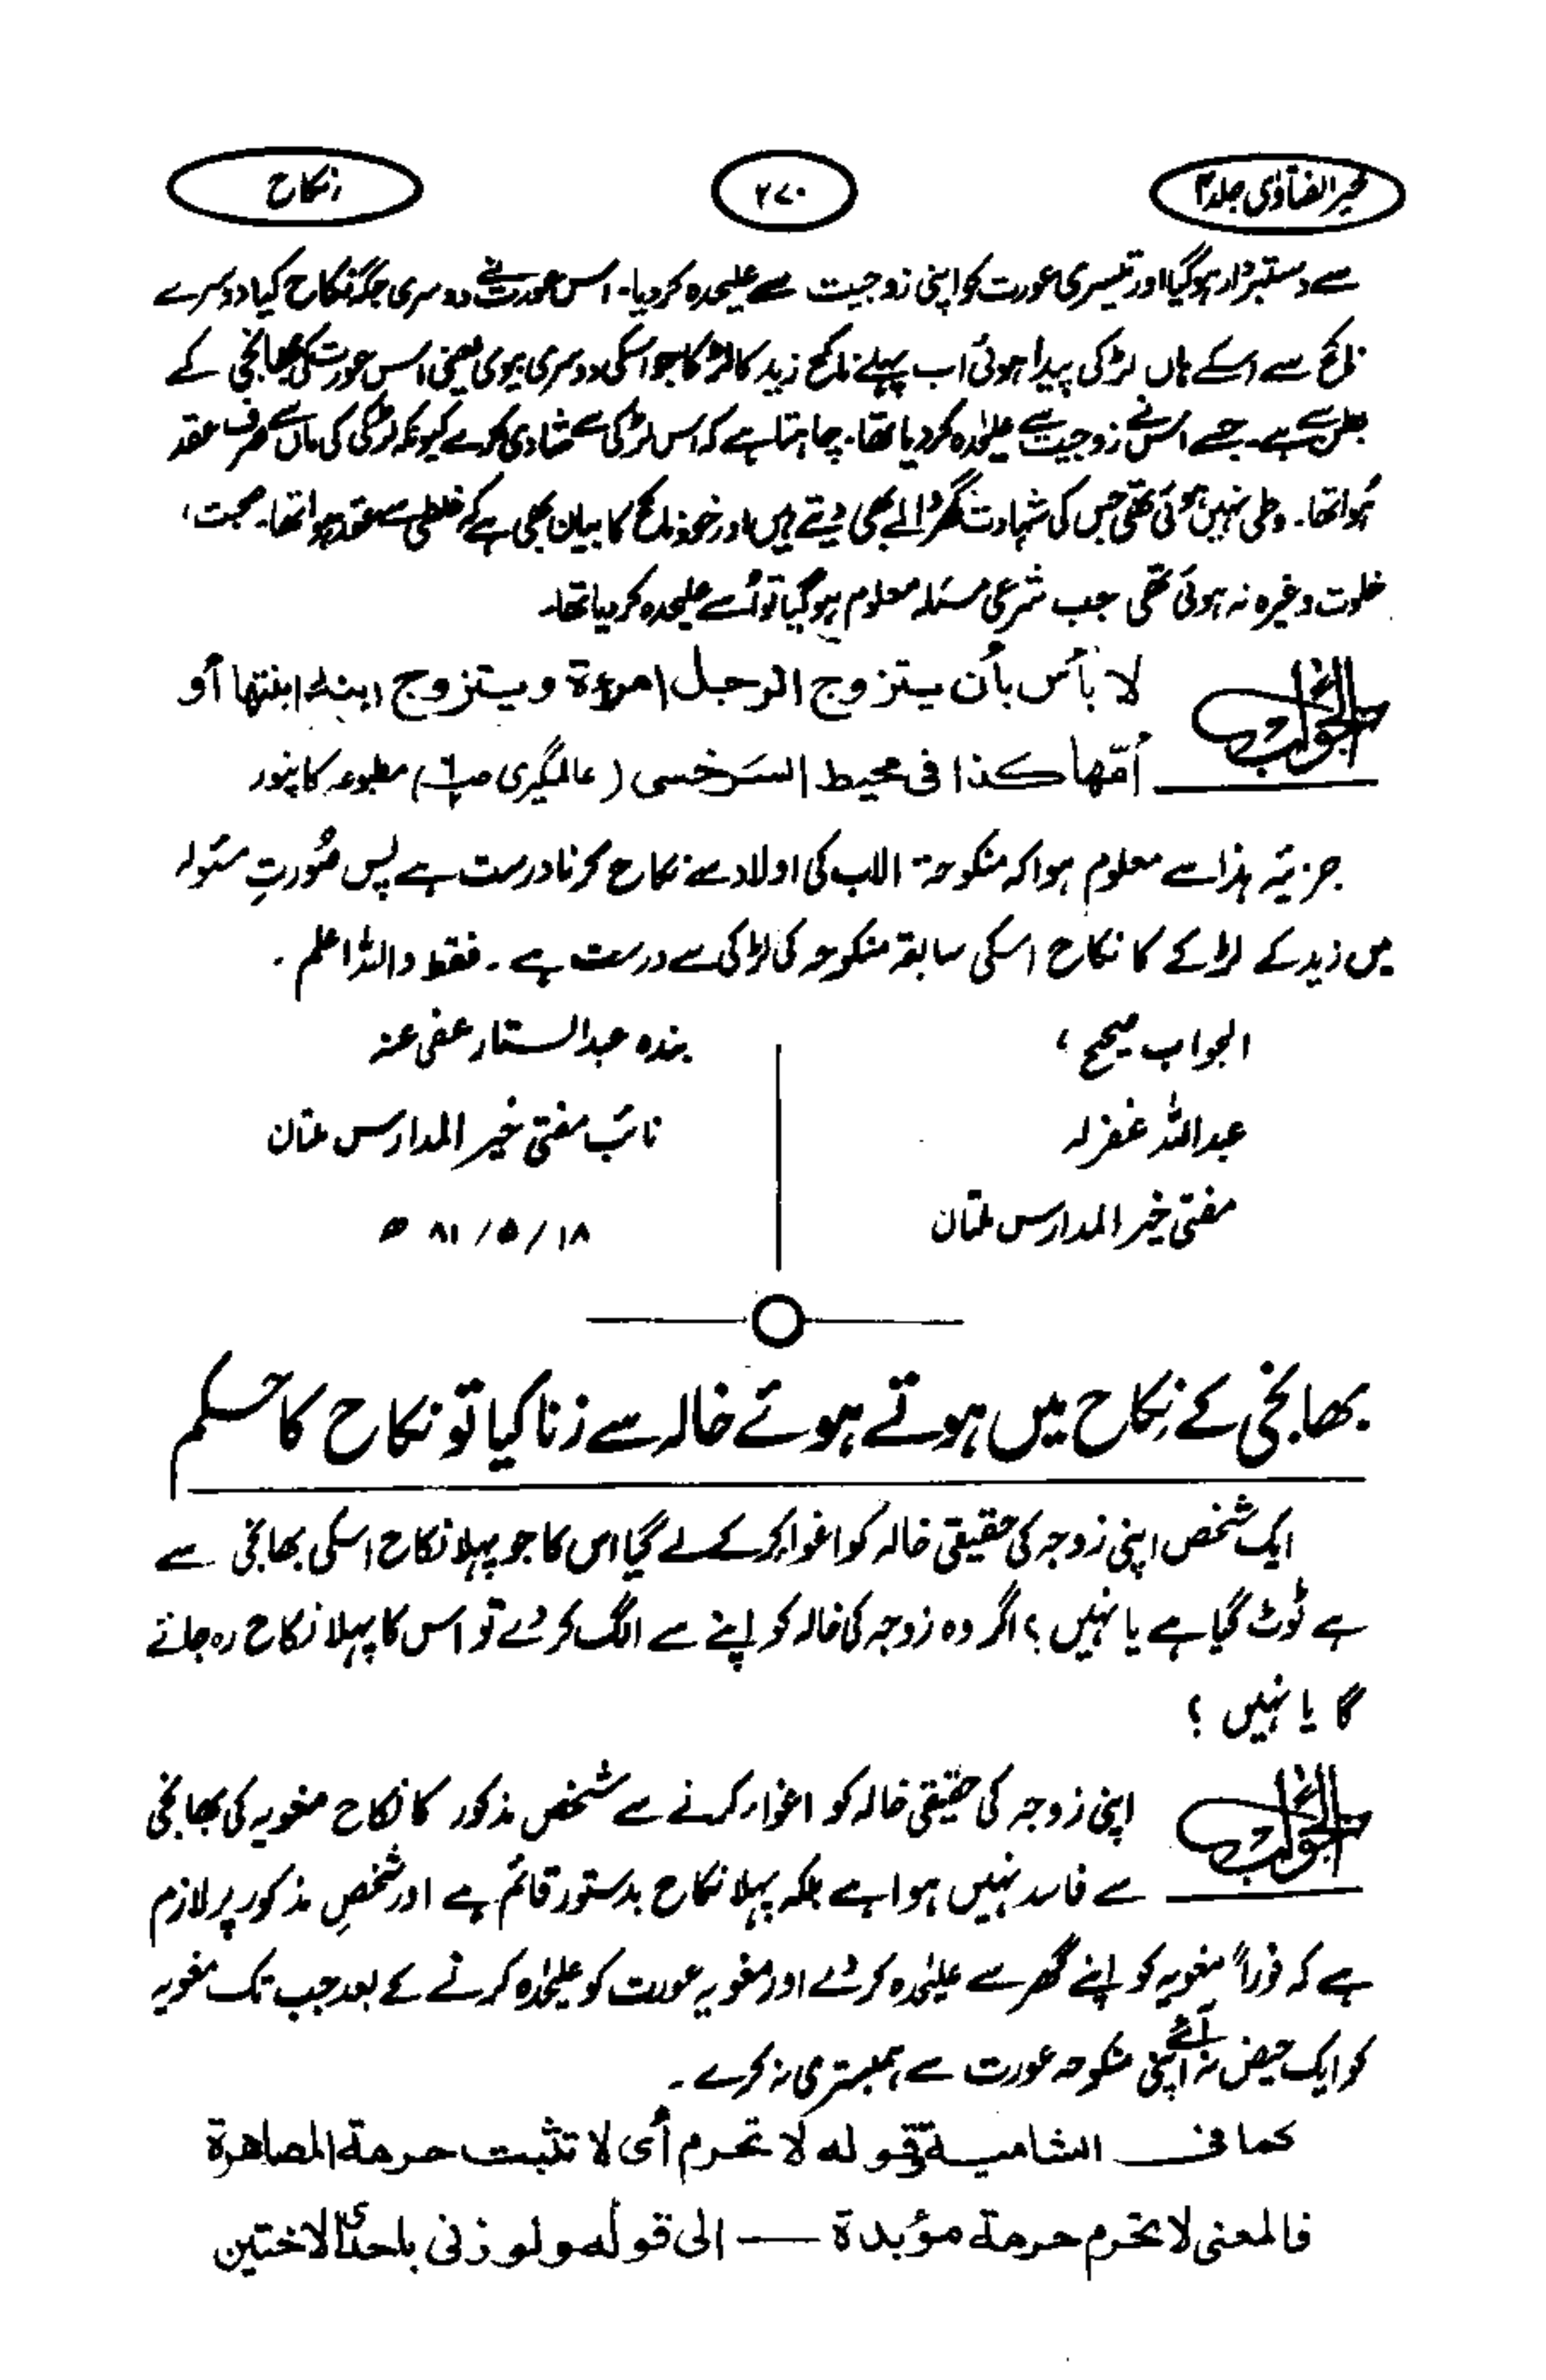 خیر الفتاوٰی جلد ۴
۲۷۰
نکاح
سے دستبردار ہوگیا اور تیسری عورت کو اپنی زوجیت سے علیحدہ کردیا۔ اس عورت نے دوسری جگہ نکاح کیا دوسرے
ناکح سے اسکے ہاں لڑکی پیدا ہوئی اب پہلے ناکح زید کا لڑکا جو اسکی دوسری بیوی یعنی اس عورت کی بھانجی کے
بطن سے ہے۔ جسے اس نے زوجیت سے علیحٰدہ کردیا تھا۔ چاہتا ہے کہ اس لڑکی سے شادی کرے کیونکہ لڑکی کی ماں سے صرف عقد
ہُوا تھا۔ وطی نہیں ہوئی تھی جس کی شہادت گھر والے بھی دیتے ہیں اور خود ناکح کا بیان بھی ہے کہ غلطی سے عقد ہوا تھا۔ صحبت،
خلوت وغیرہ نہ ہوئی تھی جب شرعی مسئلہ معلوم ہوگیا تو اُسے علیحدہ کردیا تھا۔
الجواب
لا بأس بأن يتزوج الرجل امرءة ويتزوج ابنه ابنتها أو
أمّها كذا فى محيط السَرخسى (عالمگیری ص٦) مطبوعہ کانپور
جزئیہ ہذا سے معلوم ہوا کہ منکوحۃ الاب کی اولاد سے نکاح کرنا درست ہے پس صُورتِ مسئولہ
میں زید کے لڑکے کا نکاح اسکی سابقہ منکوحہ کی لڑکی سے درست ہے۔ فقط واللہ اعلم۔
الجواب صحیح،
عبداللہ غفرلہ
مفتی خیر المدارس ملتان
بندہ عبدالستار عفی عنہ
نائب مفتی خیر المدارس ملتان
۱۸/۵/۸۱ ھ
بھانجی کے نکاح میں ہوتے ہوئے خالہ سے زنا کیا تو نکاح کا حکم
ایک شخص اپنی زوجہ کی حقیقی خالہ کو اغوا کرکے لے گیا اس کا جو پہلا نکاح اسکی بھانجی سے
ہے ٹوٹ گیا ہے یا نہیں؟ اگر وہ زوجہ کی خالہ کو اپنے سے الگ کر دے تو اس کا پہلا نکاح رہ جائے
گا یا نہیں؟
الجواب
اپنی زوجہ کی حقیقی خالہ کو اغواء کرنے سے شخص مذکور کا نکاح مغویہ کی بھانجی
سے فاسد نہیں ہوا ہے بلکہ پہلا نکاح بدستور قائم ہے اور شخصِ مذکور پر لازم
ہے کہ فوراً مغویہ کو اپنے گھر سے علیٰحدہ کر دے اور مغویہ عورت کو علیٰحدہ کرنے کے بعد جب تک مغویہ
کو ایک حیض نہ آئے اپنی منکوحہ عورت سے ہمبستری نہ کرے۔
كما فى الشامية قوله لا تحرم أى لا تثبت حرمة المصاهرة
فالمعنى لا تحرم حرمة مؤبدة — الى قوله ولو زنى باحدى الاختين